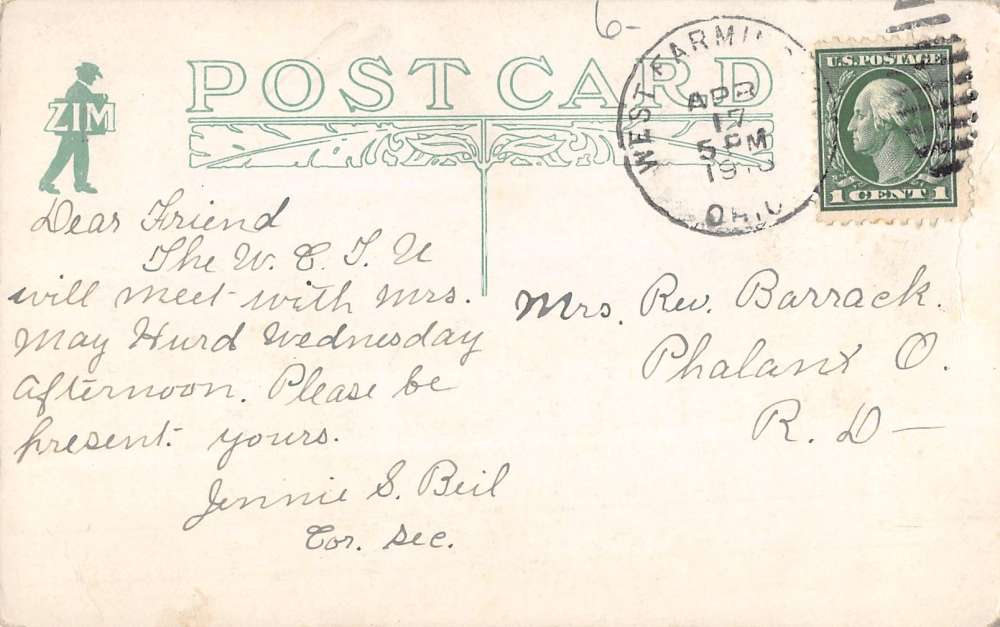 6-
ZIM
POST CARD
WEST FARMIN
APR
17
5 PM
191
OHIO
U.S. POSTAGE
1 CENT 1
Dear Friend
The W. C. T. U
will meet with Mrs.
May Hurd Wednesday
afternoon. Please be
present. yours.
Jennie S. Beil
Cor. Sec.
Mrs. Rev. Barrack.
Phalanx O.
R. D—